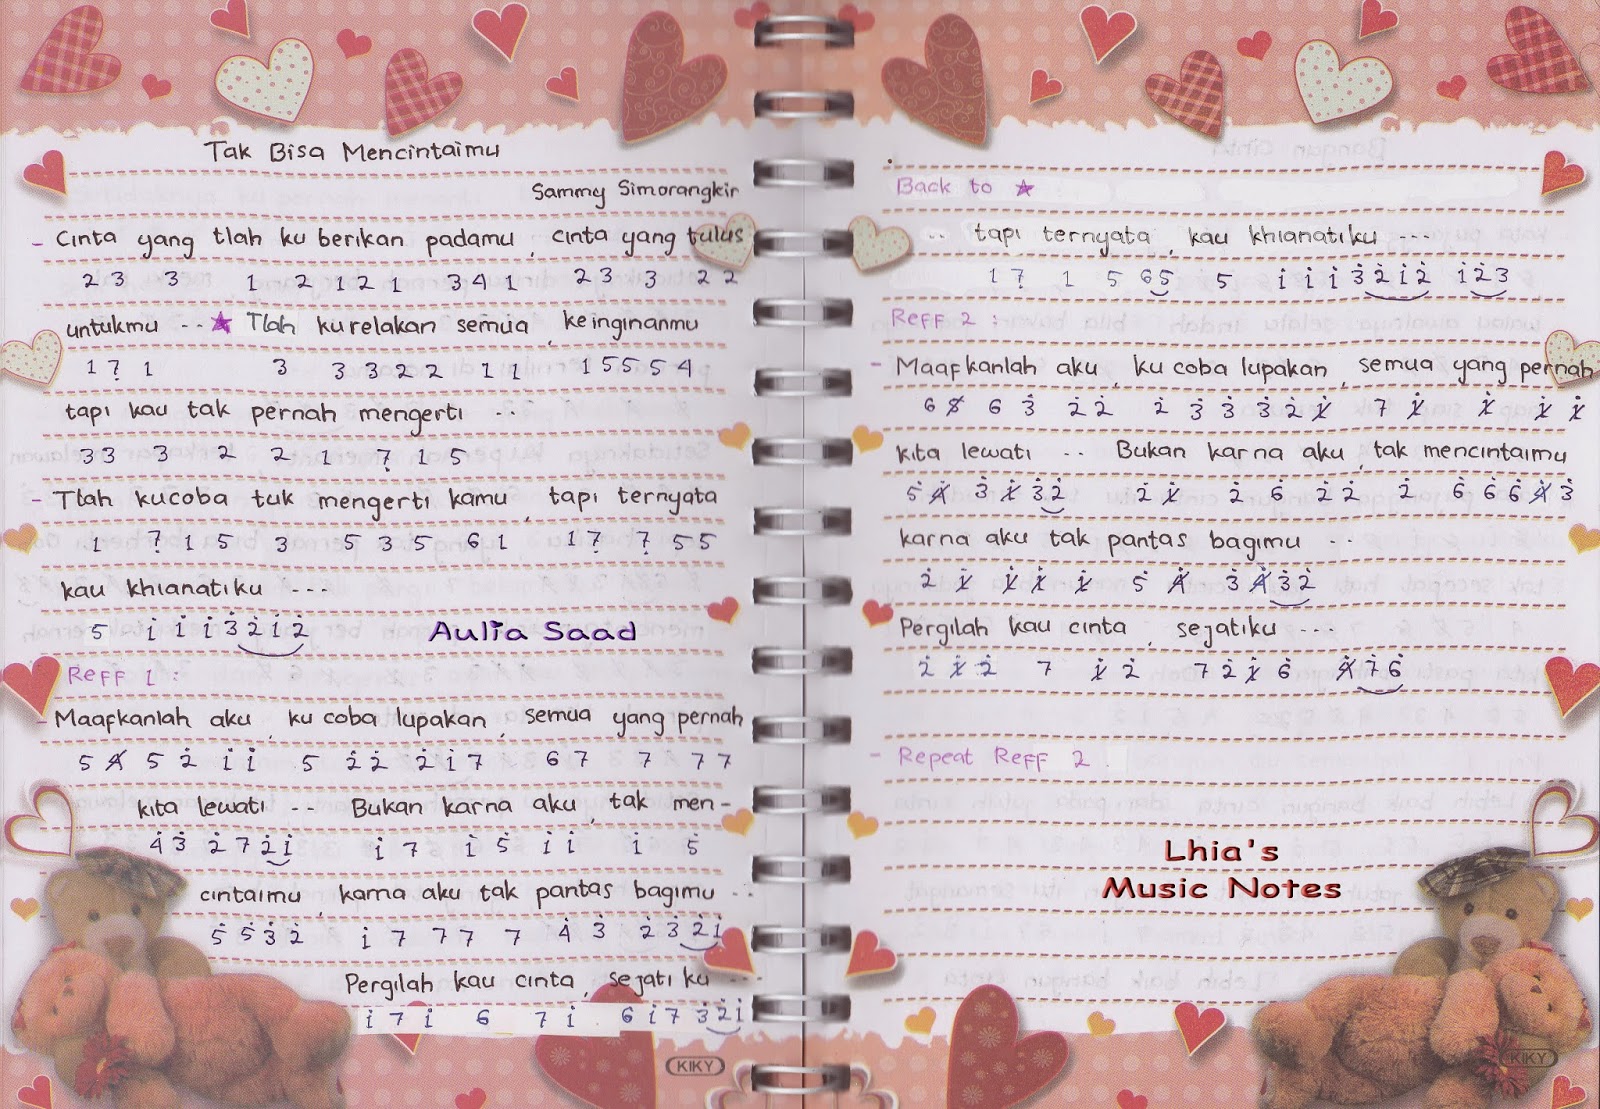 Tak Bisa Mencintaimu
Sammy Simorangkir
- Cinta yang tlah ku berikan padamu, cinta yang tulus
2 3 3 1 2 1 2 1 3 4 1 2 3 3 2 2
untukmu -- ★ Tlah ku relakan semua, keinginanmu
1 7̣ 1 3 3 3 2 2 1 1 1 5 5 5 4
tapi kau tak pernah mengerti --
3 3 3 2 2 1 7̣ 1 5
- Tlah kucoba tuk mengerti kamu, tapi ternyata
1 7̣ 1 5 3 5 3 5 6 1 1 7̣ 7̣ 5 5
kau khianatiku ---
5 i i i 3̇ 2̇ i 2̇
Aulia Saad
Reff 1 :
- Maafkanlah aku, ku coba lupakan, semua yang pernah
5 4̸ 5 2̇ i i 5 2̇ 2̇ 2̇ i 7 6 7 7 7 7
kita lewati -- Bukan karna aku, tak men-
4̇ 3̇ 2̇ 7 2̇ i i 7 i 5̇ i i i 5̇
cintaimu, karna aku tak pantas bagimu --
5̇ 5̇ 3̇ 2̇ i 7 7 7 7 4̇ 3̇ 2̇ 3̇ 2̇ i
Pergilah kau cinta, sejati ku ---
i 7 i 6 7 i 6 i 7 3̇ 2̇ i
KIKY
Back to ★
-- tapi ternyata, kau khianatiku ---
1 7̣ 1 5 6 5 5 i i i 3̇ 2̇ i 2̇ i 2̇ 3̇
Reff 2 :
- Maafkanlah aku, ku coba lupakan, semua yang pernah
6 5̸ 6 3̇ 2̇ 2̇ 2̇ 3̇ 3̇ 3̇ 2̇ 1̸̇ 7 1̸̇ 1̸̇ 1̸̇ 1̸̇
kita lewati -- Bukan karna aku, tak mencintaimu
5̇ 4̸̇ 3̇ 1̸̇ 3̇ 2̇ 2̇ 1̸̇ 2̇ 6̇ 2̇ 2̇ 2̇ 6̇ 6̇ 6̇ 4̸̇ 3̇
karna aku tak pantas bagimu --
2̇ 1̸̇ 1̸̇ 1̸̇ 1̸̇ 5̇ 4̸̇ 3̇ 4̸̇ 3̇ 2̇
Pergilah kau cinta, sejatiku ---
2̇ 1̸̇ 2̇ 7 1̸̇ 2̇ 7 2̇ 1̸̇ 6̇ 4̸̇ 7̇ 6̇
- Repeat Reff 2 .
Lhia's
Music Notes
KIKY